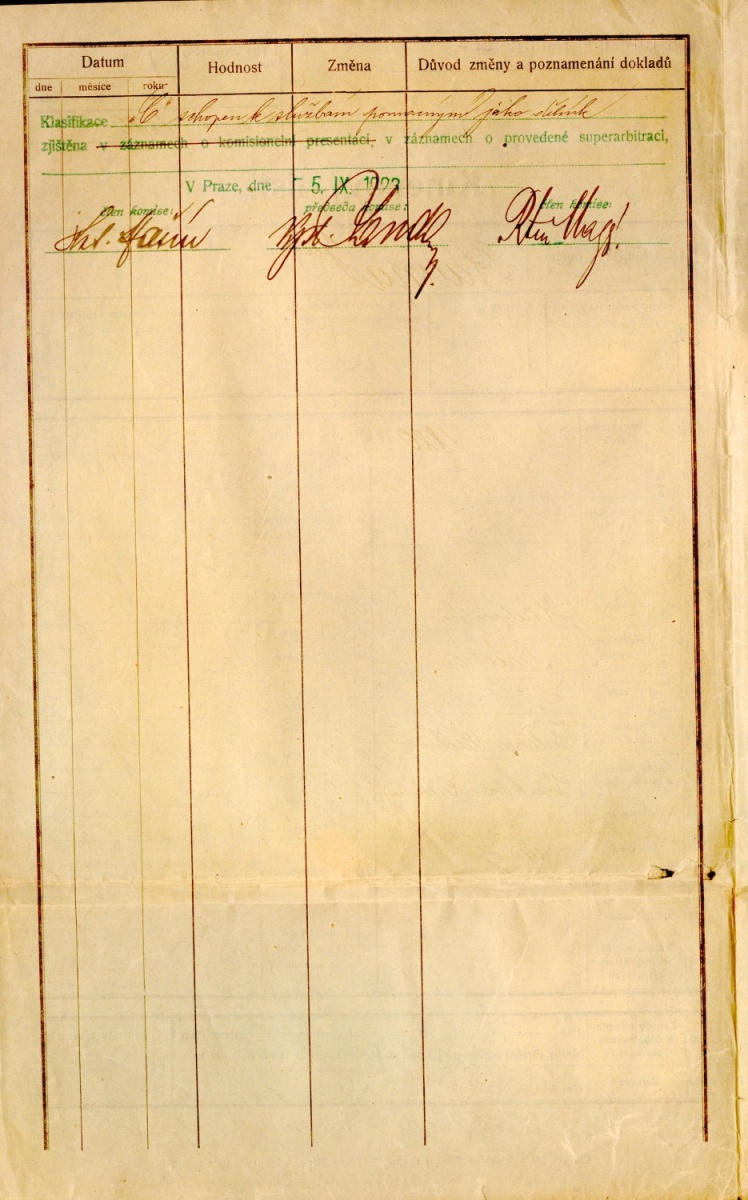 Datum Hodnost Změna Důvod změny a poznamenání dokladů
dne měsíce roku
Klasifikace "C" schopen k službám pomocným jako dělník
zjištěna v záznamech o komisionelní presentaci, v záznamech o provedené superarbitraci,
V Praze, dne 5. IX. 1923
člen komise: předseda komise: člen komise: